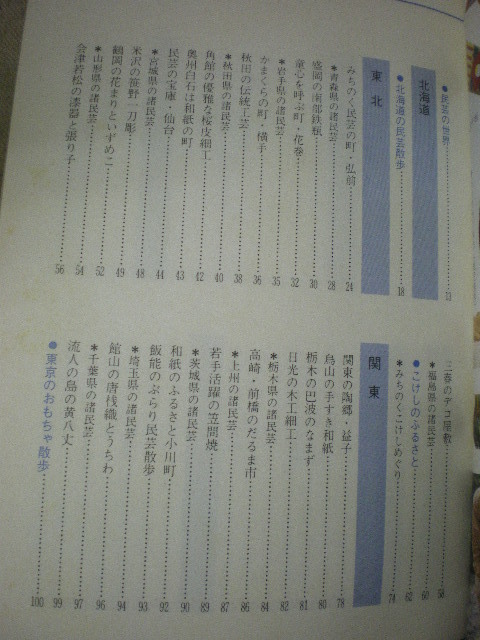 ●民芸の世界 13
北海道
●北海道の民芸散歩 18
東北
みちのく民芸の町・弘前 24
＊青森県の諸民芸 28
盛岡の南部鉄瓶 30
童心を呼ぶ町・花巻 32
＊岩手県の諸民芸 35
かまくらの町・横手 36
秋田の伝統工芸 38
＊秋田県の諸民芸 40
角館の優雅な桜皮細工 42
奥州白石は和紙の町 43
民芸の宝庫・仙台 44
＊宮城県の諸民芸 48
米沢の笹野一刀彫 49
鶴岡の花まりといずめこ 52
＊山形県の諸民芸 54
会津若松の漆器と張り子 56
三春のデコ屋敷 58
＊福島県の諸民芸 60
●こけしのふるさと 62
＊みちのくこけしめぐり 74
関東
関東の陶郷・益子 78
烏山の手すき和紙 80
栃木の巴波のなまず 81
日光の木工細工 82
＊栃木県の諸民芸 84
高崎・前橋のだるま市 86
＊上州の諸民芸 87
若手活躍の笠間焼 89
＊茨城県の諸民芸 90
和紙のふるさと小川町 92
飯能のぶらり民芸散歩 93
＊埼玉県の諸民芸 94
館山の唐桟織とうちわ 96
＊千葉県の諸民芸 97
流人の島の黄八丈 99
●東京のおもちゃ散歩 100